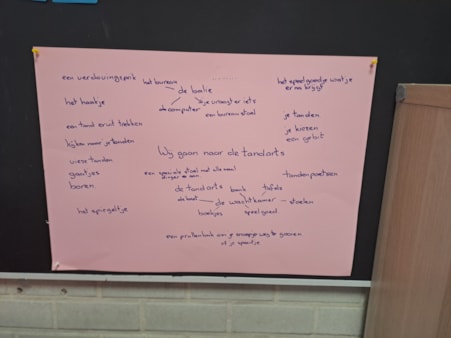 een verdovingsprik
het bureau
de balie
het speelgoedje wat je
er na krijgt
het haakje
de computer
je vraagt er iets
een bureau stoel
een tand eruit trekken
je tanden
je kiezen
een gebit
kijken naar je tanden
Wij gaan naar de tandarts
vieze tanden
gaatjes
boren
een speciale stoel met alle maal
dingen aan
tandenpoetsen
de tandarts
bank
tafels
de wachtkamer
stoelen
boekjes
speelgoed
het spiegeltje
een prullenbak om je snoepje weg te gooien
of je speentje